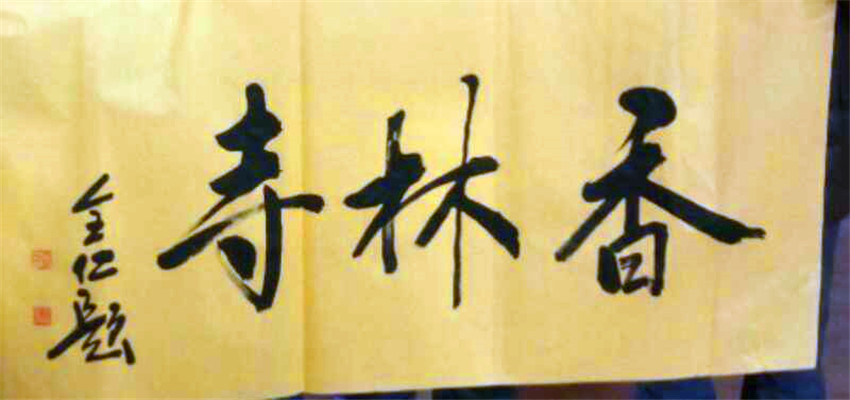 香林寺
全仁题